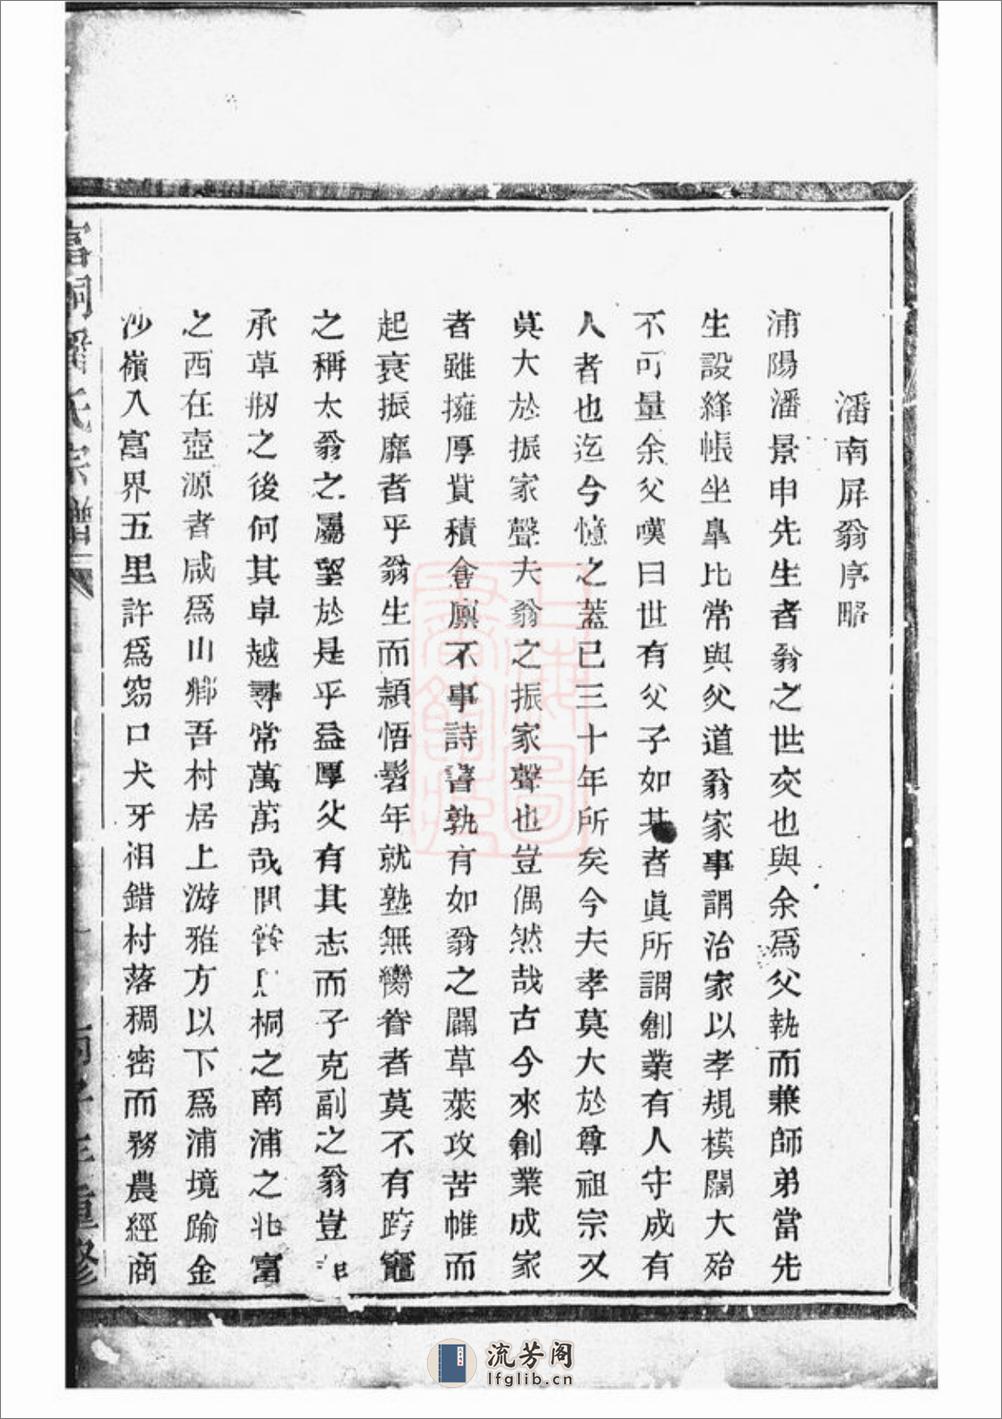 潘南屛翁序略
浦陽潘景申先生者翁之世交也與余爲父執而兼師弟當先
生設絳帳坐臯比常與父道翁家事謂治家以孝規模闊大殆
不可量余父嘆曰世有父子如某者眞所謂創業有人守成有
人者也迄今憶之蓋已三十年所矣今夫孝莫大於尊祖宗又
莫大於振家聲夫翁之振家聲也豈偶然哉古今來創業成家
者雖擁厚貲積倉廪不事詩書孰有如翁之闢草萊攻苦帷而
起衰振靡者乎翁生而頴悟髫年就塾無嚮眷者莫不有跨竈
之稱太翁之屬望於是乎益厚父有其志而子克副之翁豈
承草剏之後何其卓越尋常萬萬哉間嘗 桐之南浦之北富
之西在壺源者咸爲山鄉吾村居上游雅方以下爲浦境踰金
沙嶺入富界五里許爲窈口犬牙相錯村落稠密而務農經商
富桐潘氏宗譜
丙子年重修
上海圖書館藏
流芳阁
lfglib.cn